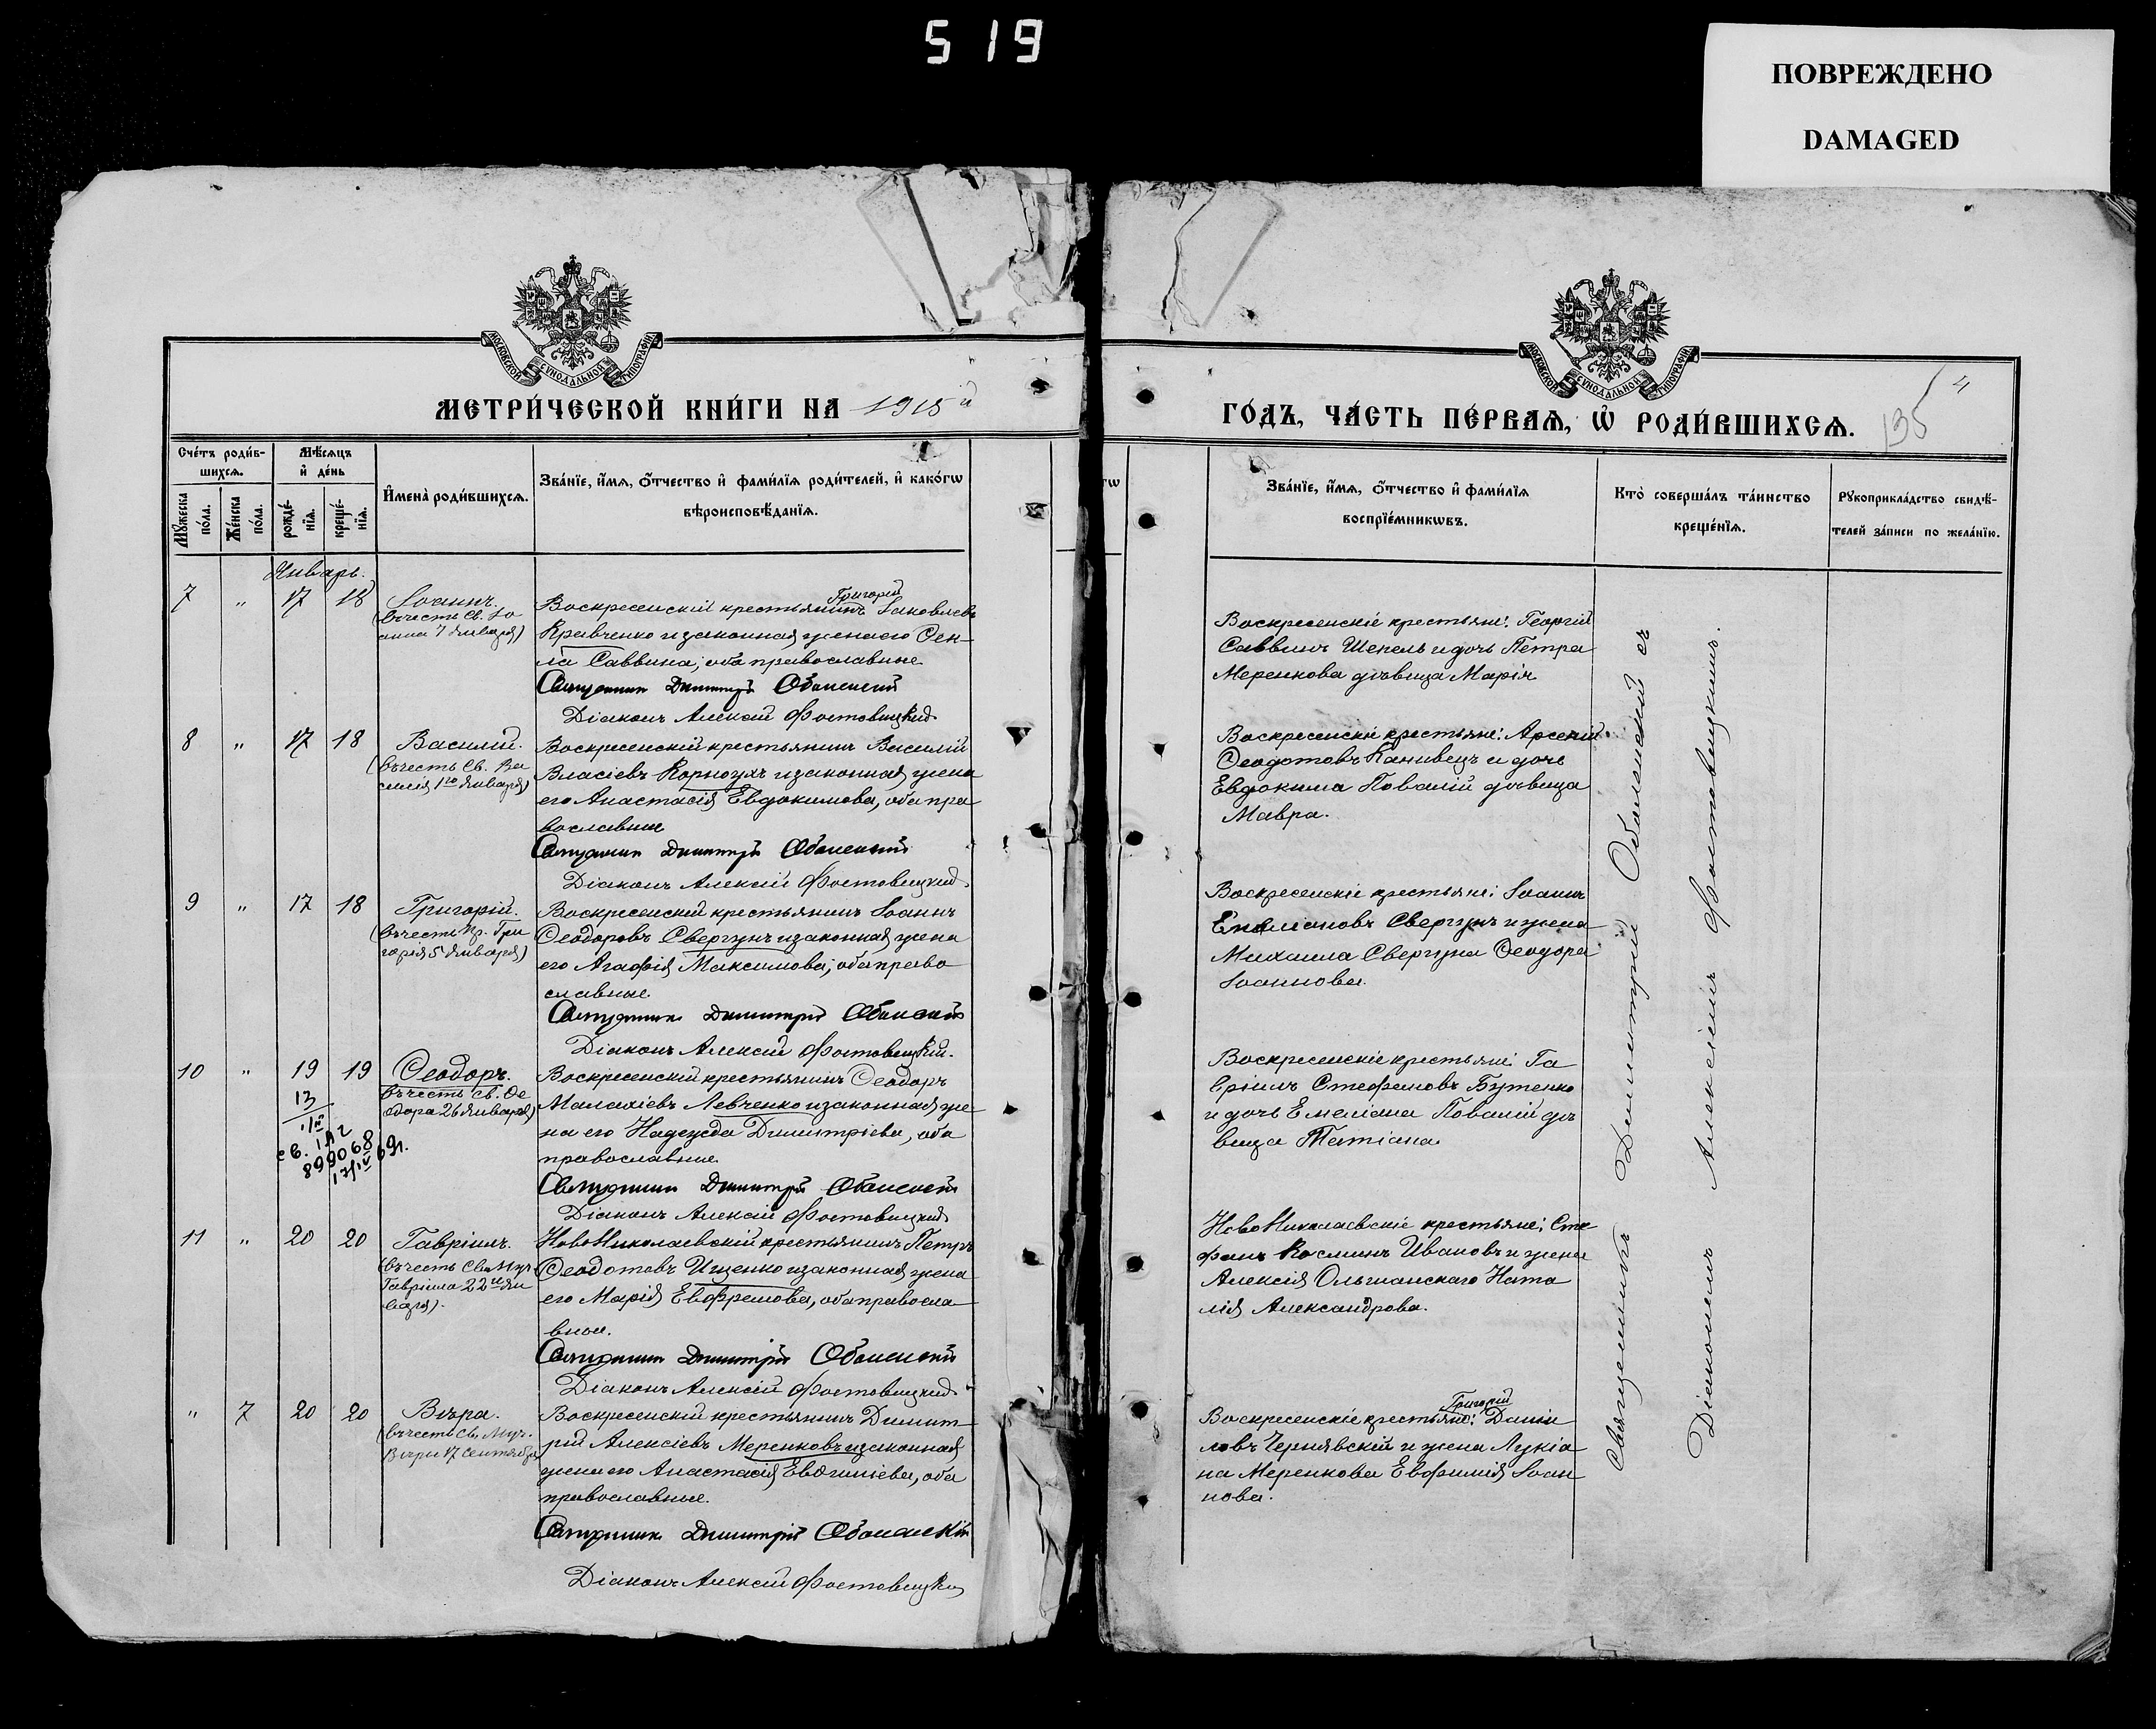 519
ПОВРЕЖДЕНО
DAMAGED
МОСКОВСКОЙ СУНОДАЛЬНОЙ ТИПОГРАФІИ
МОСКОВСКОЙ СУНОДАЛЬНОЙ ТИПОГРАФІИ
МЕТРИ́ЧЕСКОЙ КНИ́ГИ НА 1915й
ГО́ДЪ, ЧА́СТЬ ПЕ́РВАѦ, Ѡ҆ РОДИ́ВШИХСѦ.
4
135
Сче́тъ роди́в-
шихсѧ.
Мѣ́сѧцъ
и҆ де́нь
Мꙋ́жеска
по́ла.
Же́нска
по́ла.
рожде́-
нїѧ.
креще́-
нїѧ.
И҆мена̀ роди́вшихсѧ.
Зва́нїе, и҆́мѧ, ѻ҆́тчество и҆ фами́лїѧ роди́телей, и҆ како́гѡ
вѣроисповѣ́данїѧ.
гѡ
Зва́нїе, и҆́мѧ, ѻ҆́тчество и҆ фами́лїѧ
воспрїе́мникѡвъ.
Кто̀ соверша́лъ та́инство
креще́нїѧ.
Рꙋкоприкла́дство свидѣ́-
телей за́писи по жела́нїю.
Январь.
7 " 17 18 Іоаннъ.
(въ честь Св. Іо
анна 7 января)
Григорій
Воскресенскій крестьянинъ Іаковлевъ
Кравченко и законная жена его Ѳек-
ла Саввина; оба православные
Священник Димитрій Оболенский
Діаконъ Алексій Фостовицкий.
Воскресенскіе крестьяне: Георгій
Саввинъ Шепель и дочь Петра
Меренкова дѣвица Марія
8 " 17 18 Василій.
(въ честь Св. Ва
силія 1го января)
Воскресенскій крестьянинъ Василій
Власіевъ Корноухъ и законная жена
его Анастасія Евдокимова, оба пра
вославные
Священник Димитрій Оболенский
Діаконъ Алексій Фостовицкий.
Воскресенскіе крестьяне: Арсеній
Ѳеодотовъ Канивецъ и дочь
Евдокима Повалій дѣвица
Мавра.
9 " 17 18 Григорій.
(въ честь пр. Гри
горія 5 января)
Воскресенскій крестьянинъ Іоаннъ
Ѳеодоровъ Свергунъ и законная жена
его Агафія Максимова; оба право
славные.
Священник Димитрій Оболенский
Діаконъ Алексій Фостовицкий.
Воскресенскіе крестьяне: Іоаннъ
Емеліановъ Свергунъ и жена
Михаила Свергуна Ѳеодора
Іоаннова.
10 " 19 19 Ѳеодоръ.
(въ честь св. Ѳе
одора 26 января)
13
899068
Воскресенскій крестьянинъ Ѳеодоръ
Малахіевъ Левченко и законная же
на его Надежда Димитріева, оба
православные.
Священник Димитрій Оболенский
Діаконъ Алексій Фостовицкий
Воскресенскіе крестьяне: Га
вріилъ Стефановъ Бутенко
и дочь Емеліана Повалій дѣ
вица Татіана
11 " 20 20 Гавріилъ.
(въ честь Св. Муч.
Гавріила 22го ян
варя).
НовоНиколаевскій крестьянинъ Петръ
Ѳеодотовъ Ищенко и законная жена
его Марія Евфремова, оба правосла
вные.
Священник Димитрій Оболенский
Діаконъ Алексій Фостовицкий
НовоНиколаевскіе крестьяне: Сте
фанъ Косминъ Ивановъ и жена
Алексія Ольшанскаго Ната
лія Александрова.
" 7 20 20 Вѣра.
(въ честь св. Муч.
Вѣры 17 Сентября)
Воскресенскій крестьянинъ Димит-
рій Алексіевъ Меренковъ и законная
жена его Анастасія Евѳиміева, оба
православные.
Священник Димитрій Оболенскій
Діаконъ Алексій Фостовицкий
Григорій
Воскресенскіе крестьяне: Даніи
ловъ Чернявскій и жена Лукіа
на Меренкова Евфимія Іоан
нова.
Священникъ Димитрій Оболенскій съ
Діакономъ Алексіемъ Фостовицкимъ.